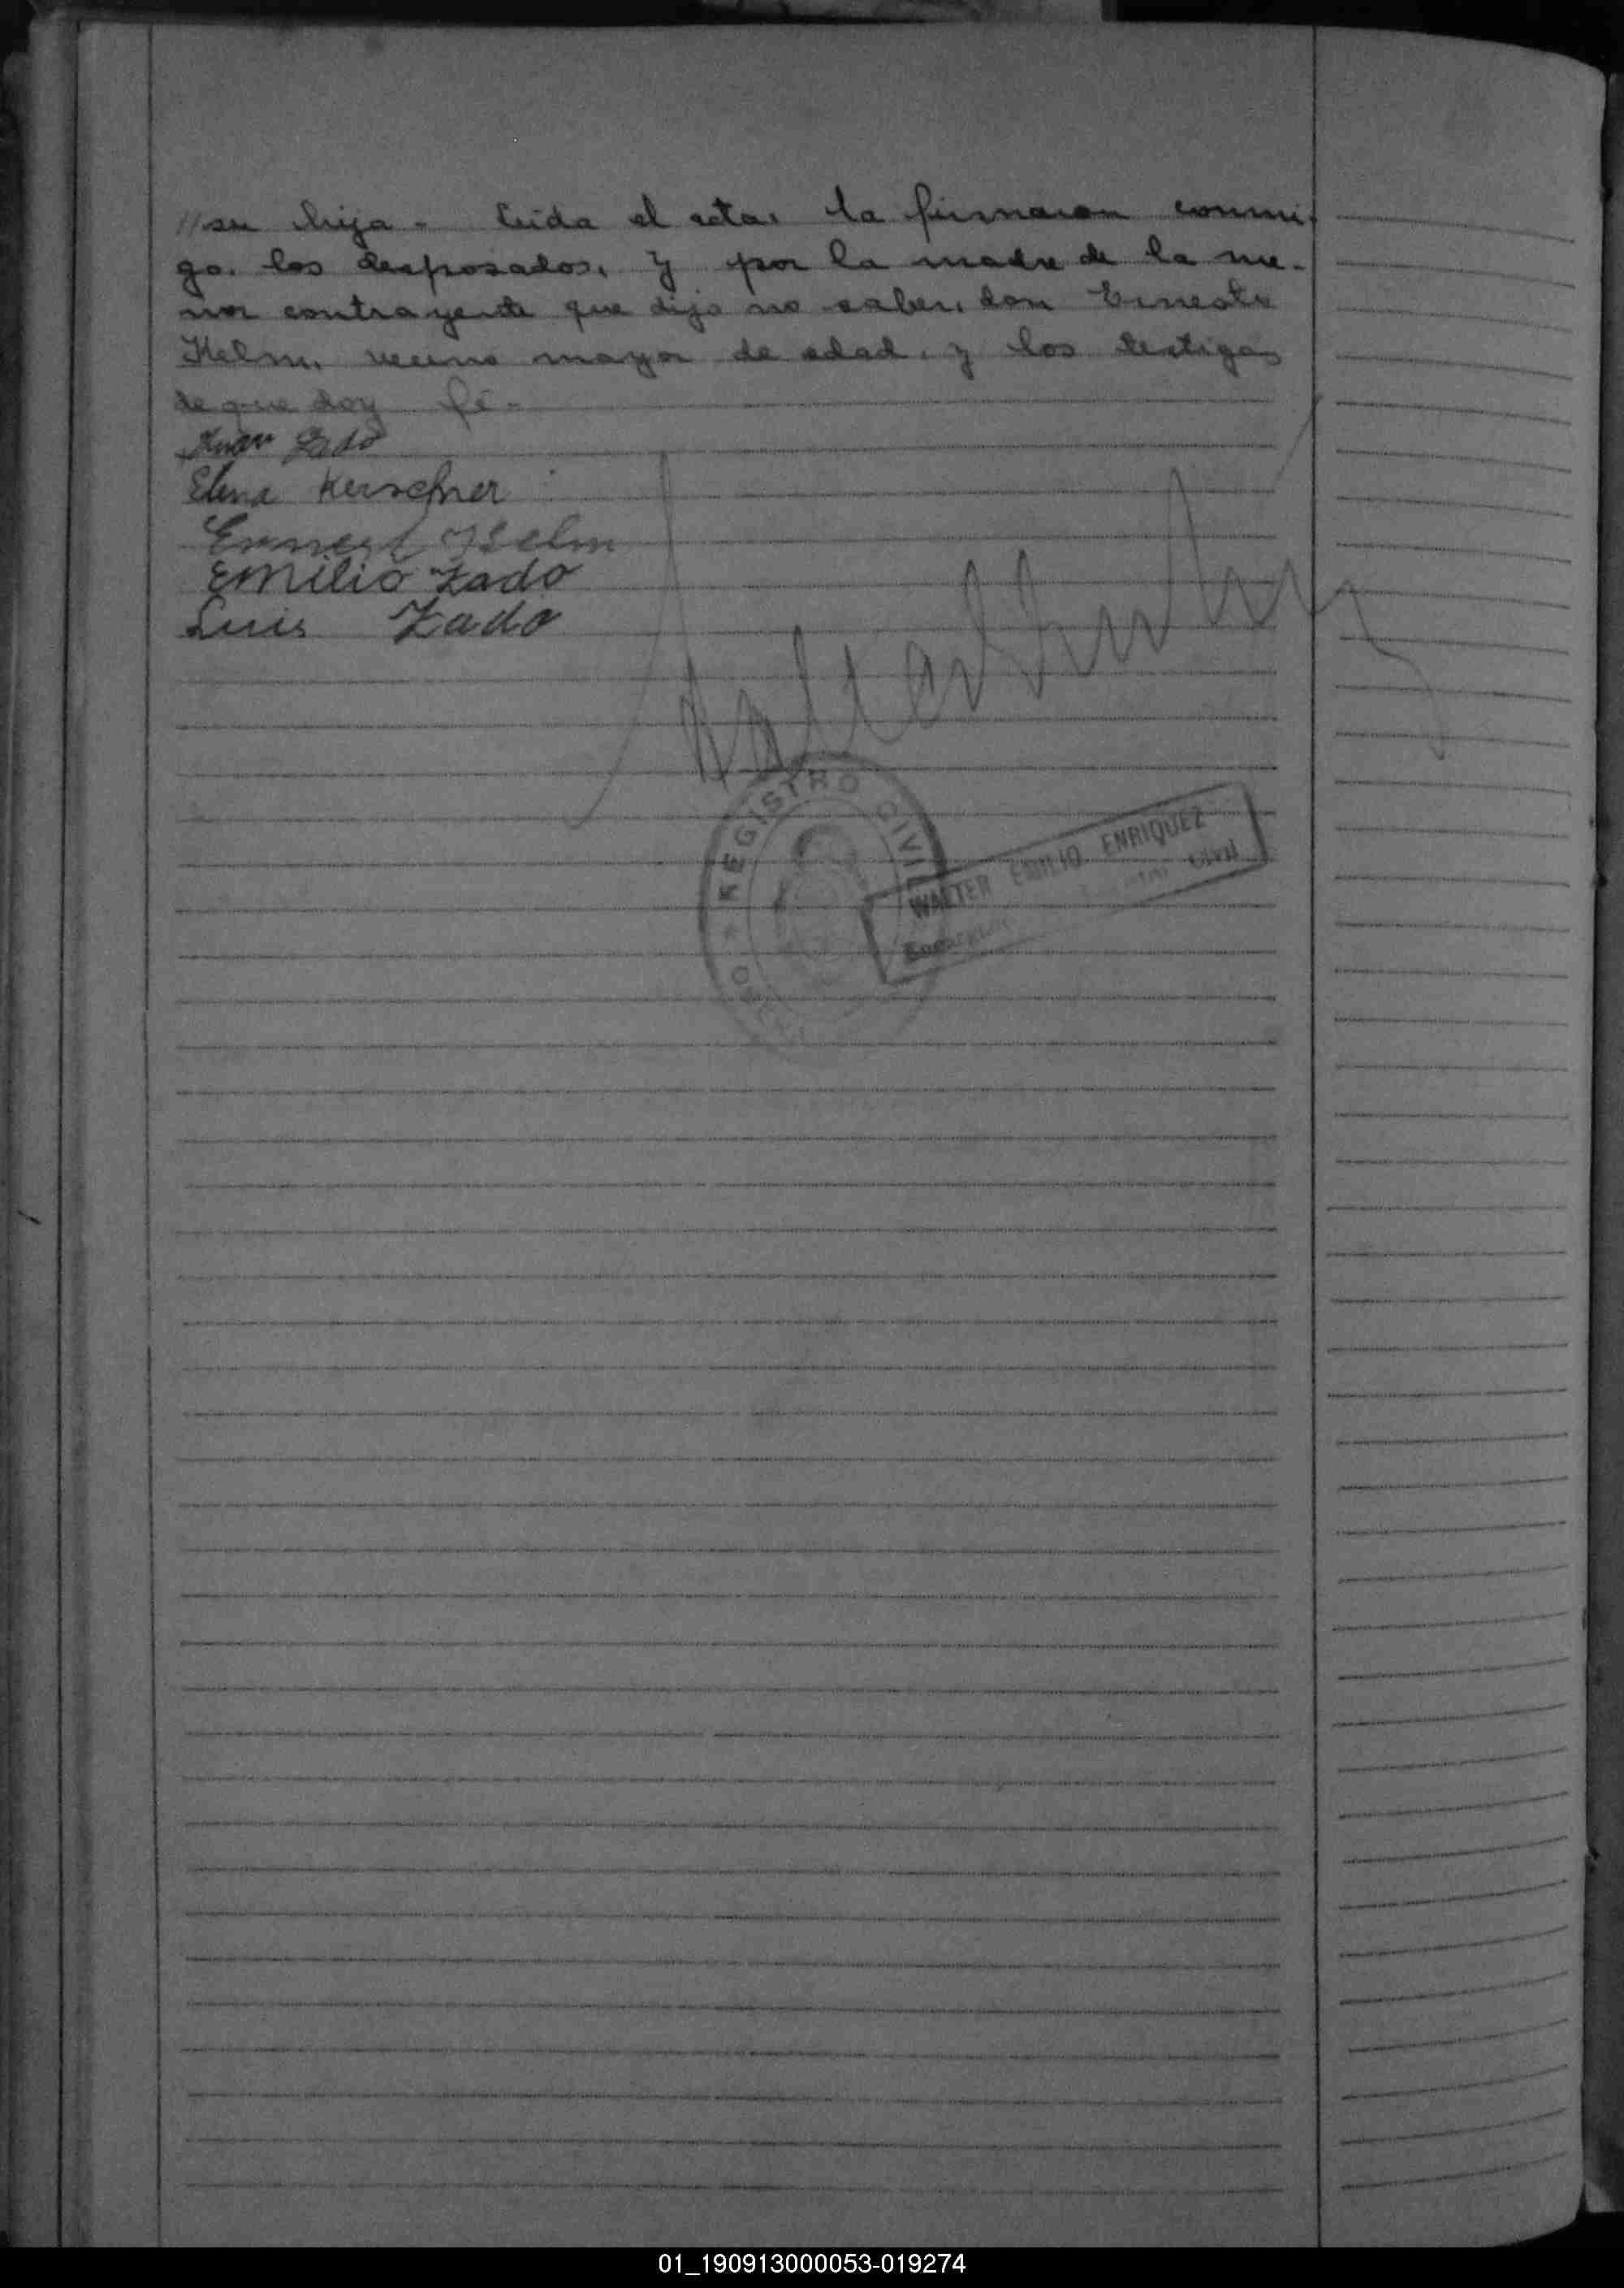 //su hija - Leida el acta, la firmaron conmi-
go, los desposados, y por la madre de la me-
nor contrayente que dijo no saber, don Ernesto
Helm, vecino mayor de edad, y los testigos
de que doy fé -
Juan Zado
Elena Kerschner
Ernest Helm
Emilio Zado
Luis Zado
REGISTRO CIVIL
WALTER EMILIO ENRIQUEZ
Civil
01_190913000053-019274